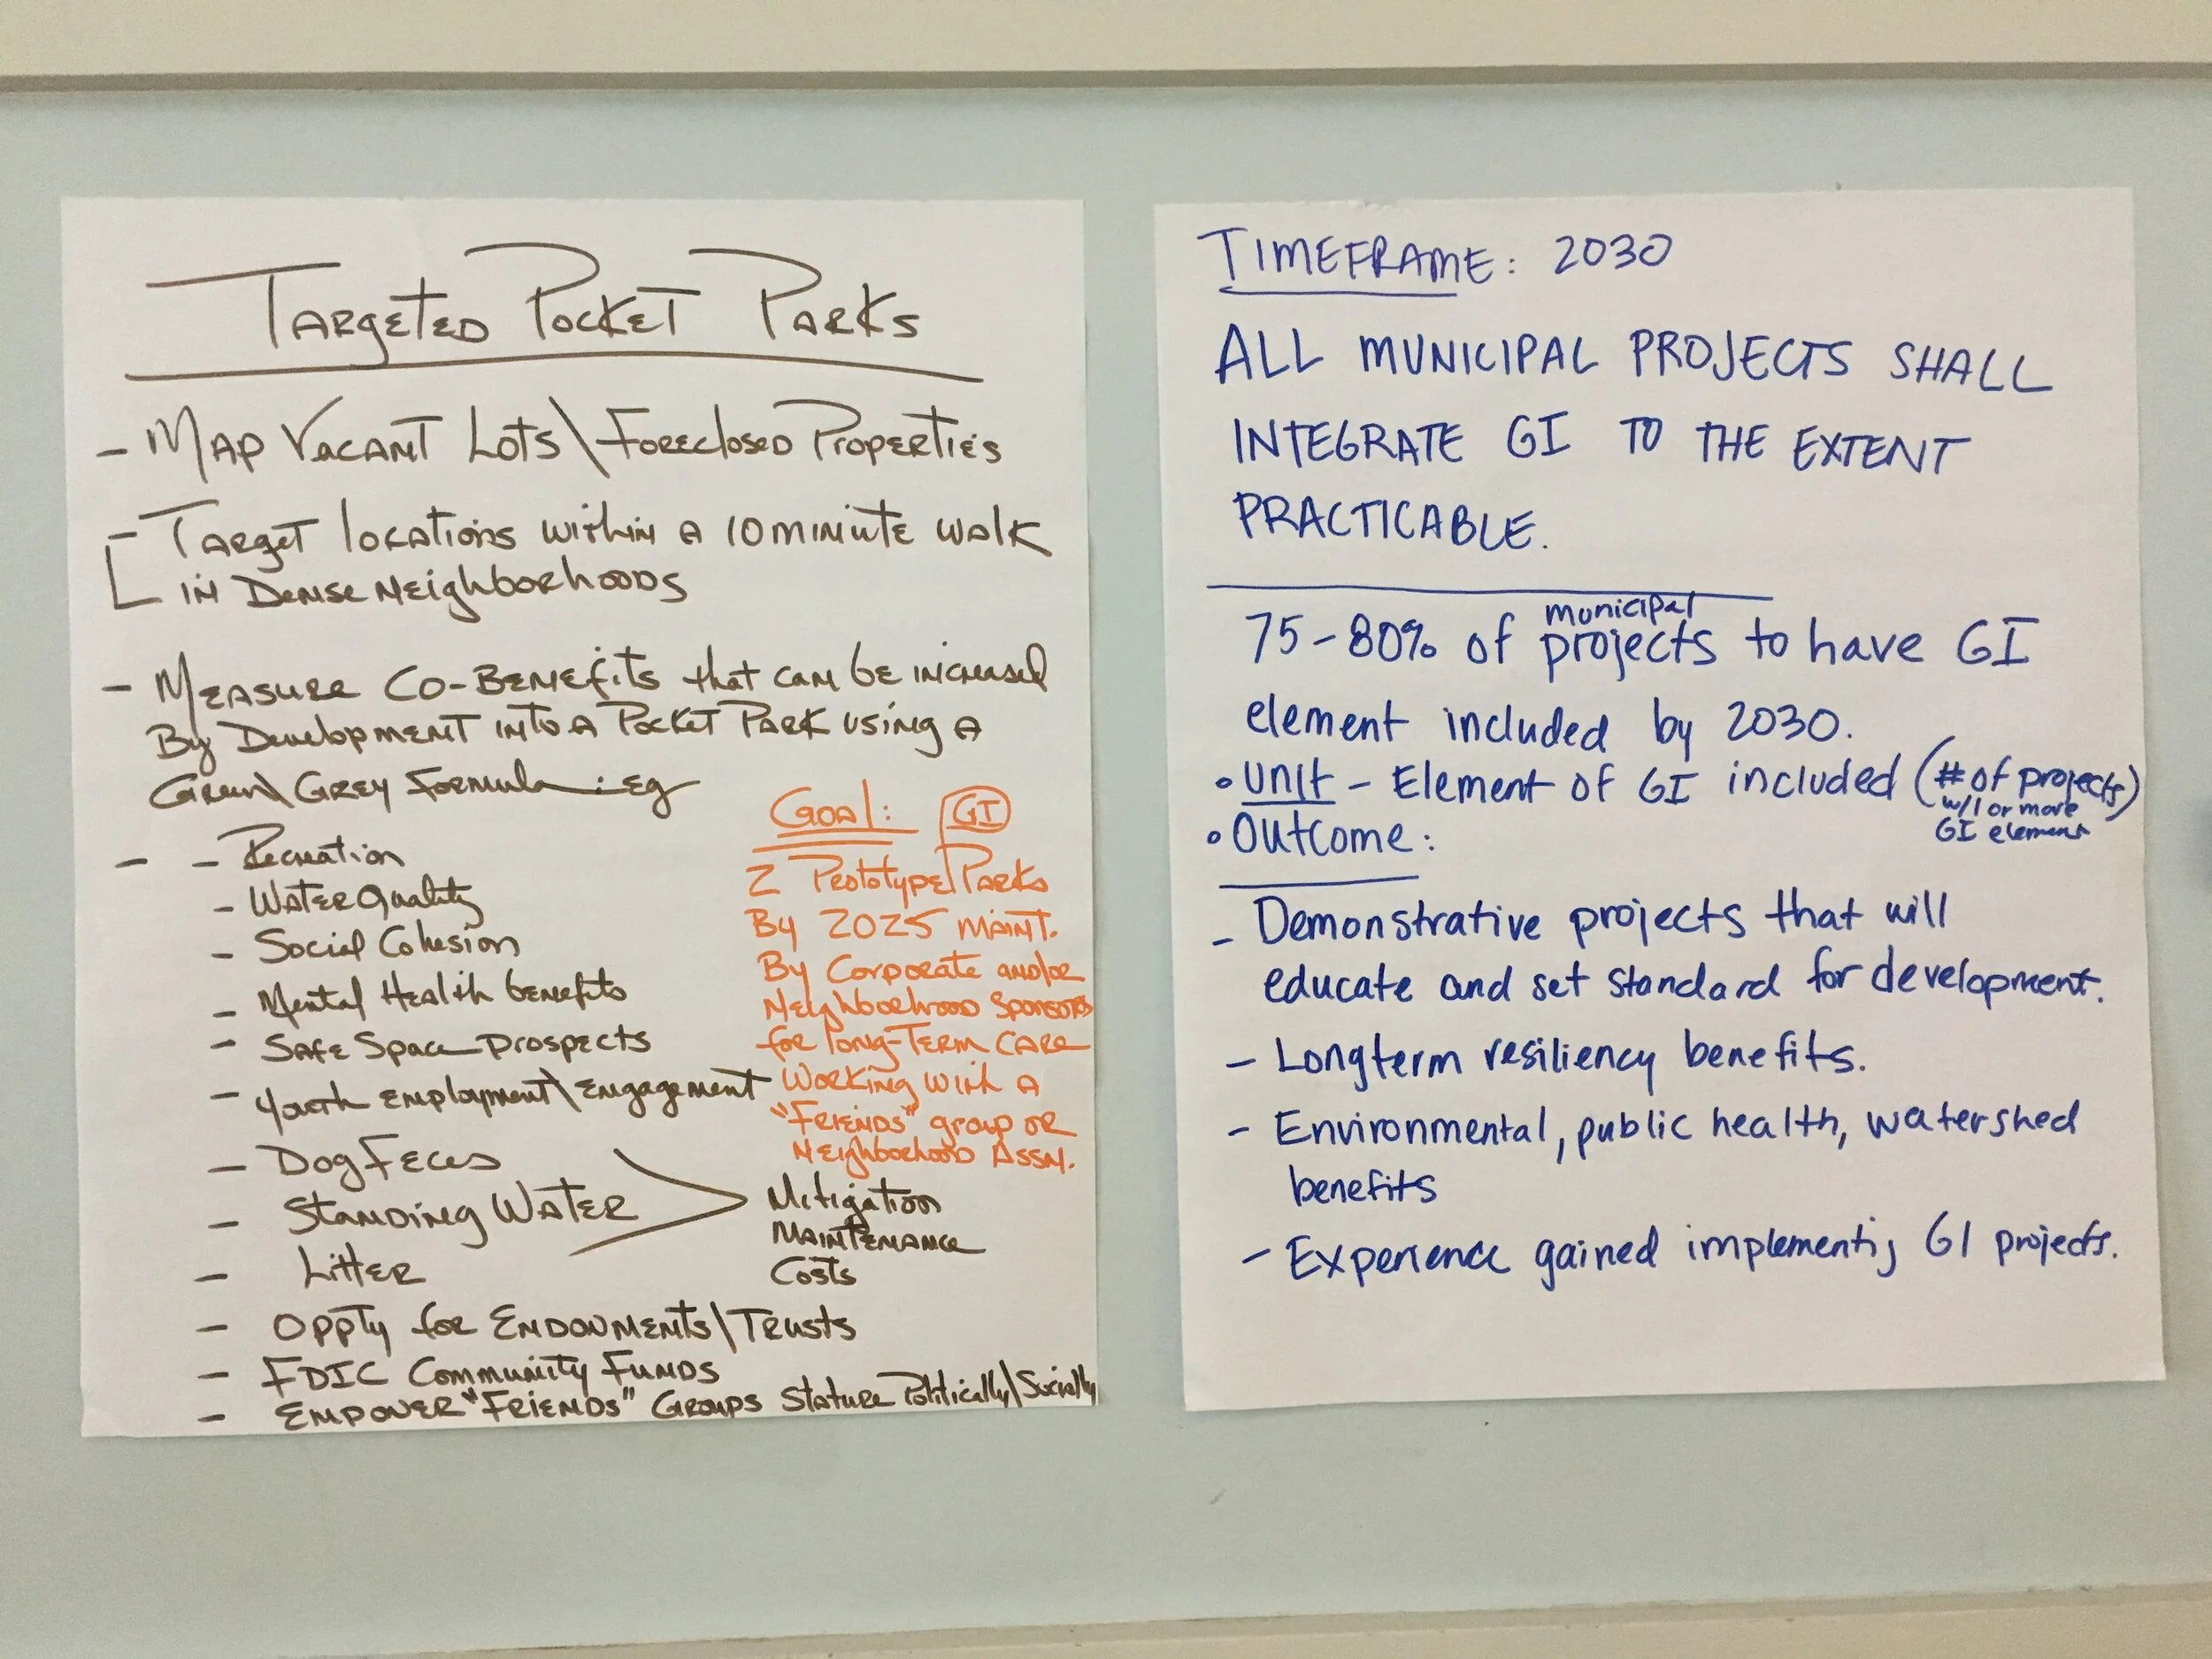 Targeted Pocket Parks
- Map Vacant Lots\Foreclosed Properties
- Target locations within a 10 minute walk
in Dense Neighborhoods
- Measure Co-Benefits that can be increased
By Development into a Pocket Park using a
Green\Grey Formula : eg
- - Recreation
- Water Quality
- Social Cohesion
- Mental Health benefits
- Safe Space Prospects
- Youth Employment\Engagement
- Dog Feces
- Standing Water
- Litter
Mitigation
Maintenance
Costs
- Oppty for Endowments\Trusts
- FDIC Community Funds
- Empower "Friends" Groups Stature Politically\Socially
Goal: GI
2 Prototype Parks
By 2025 maint.
By Corporate and/or
Neighborhood Sponsors
for long-term care
Working with a
"Friends" group or
Neighborhood Assn.
TIMEFRAME: 2030
ALL MUNICIPAL PROJECTS SHALL
INTEGRATE GI TO THE EXTENT
PRACTICABLE.
municipal
75-80% of projects to have GI
element included by 2030.
• Unit - Element of GI included (# of projects)
w/1 or more
GI element
• Outcome:
- Demonstrative projects that will
educate and set standard for development.
- Longterm resiliency benefits.
- Environmental, public health, watershed
benefits
- Experience gained implementing GI projects.